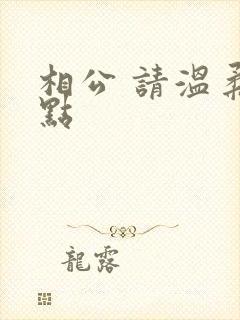 相公 請溫柔
點
龍露